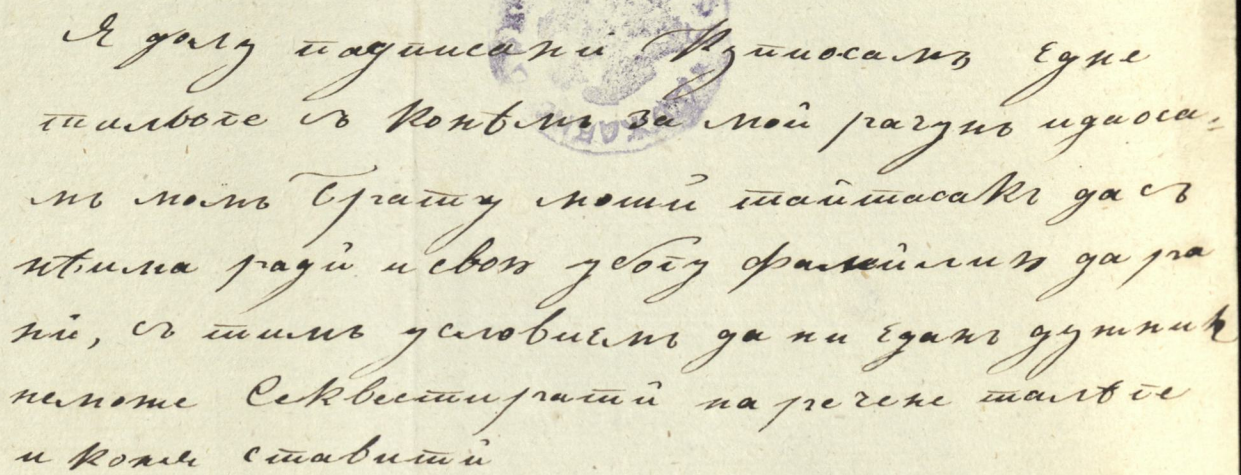 Я долу подписани Купиосамъ едне
тальѣге съ Конѣмъ за мой рачунъ идаоса-
мъ момъ Брату моши тайтасакъ да съ
нѣима ради и свою убогу фамилию да ра
ни, съ тимъ условиемъ да ни еданъ дужник
неможе Секвестирати на речене талѣге
и коня ставити